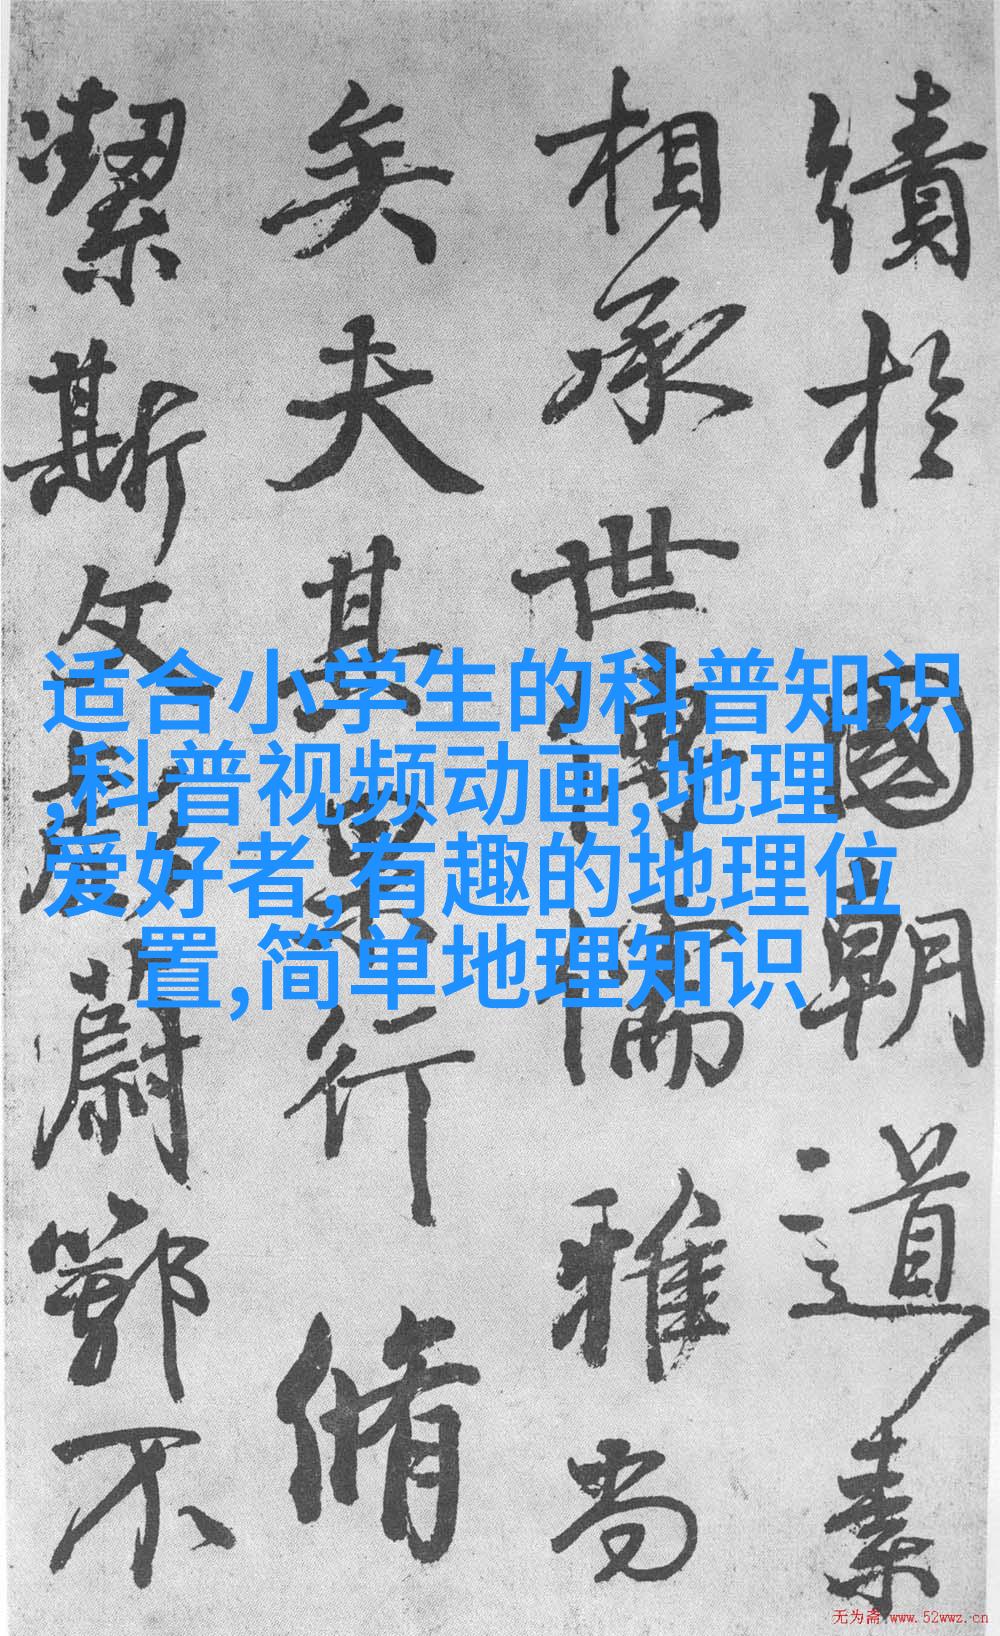 績於國朝道素
相承世傳儒雅尚
矣夫其果行脩
潔斯文彪蔚鄂不
适合小学生的科普知识
,科普视频动画,地理
爱好者,有趣的地理位
置,简单地理知识
无为斋 www.52wwz.cn